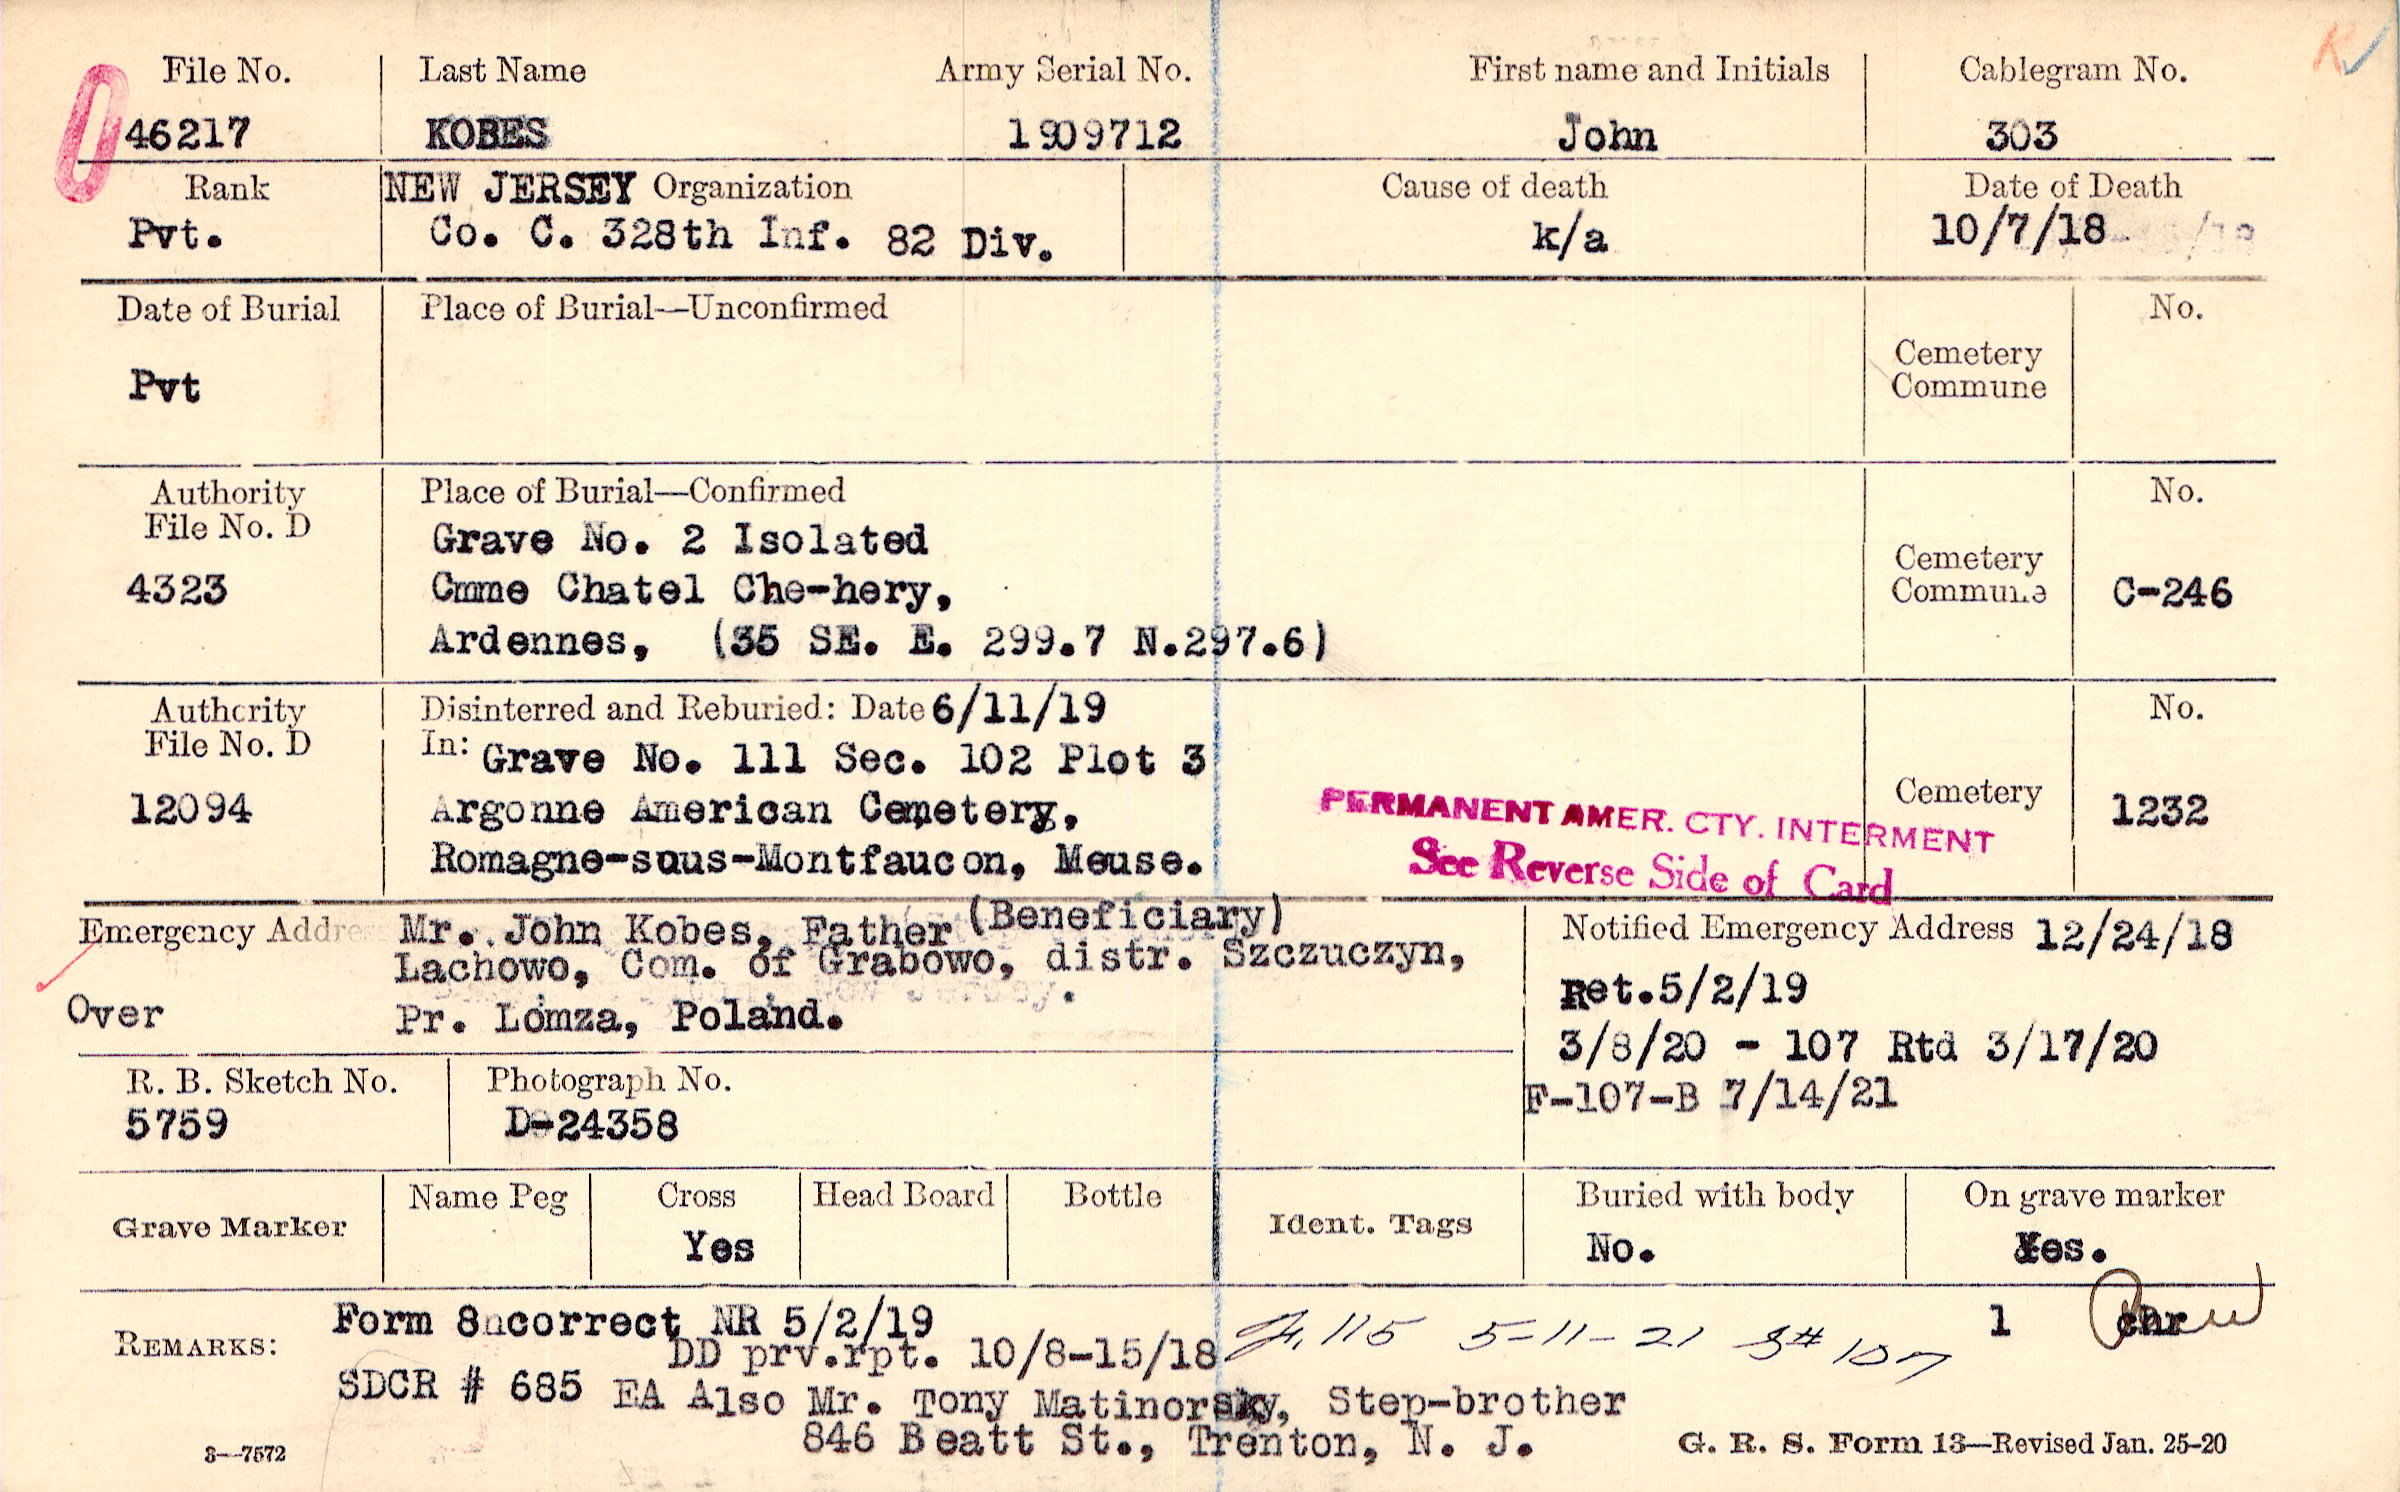 File No. Last Name Army Serial No. First name and Initials Cablegram No.
46217 KOBES 1909712 John 303
Rank NEW JERSEY Organization Cause of death Date of Death
Pvt. Co. C. 328th Inf. 82 Div. k/a 10/7/18
Date of Burial Place of Burial—Unconfirmed No.
Cemetery
Commune
Pvt
Authority Place of Burial—Confirmed No.
File No. D
Grave No. 2 Isolated
Cemetery
4323 Cmme Chatel Che-hery, Commune C-246
Ardennes, (35 SE. E. 299.7 N.297.6)
Authority Disinterred and Reburied: Date 6/11/19 No.
File No. D In: Grave No. 111 Sec. 102 Plot 3
12094 Argonne American Cemetery, Cemetery 1232
PERMANENT AMER. CTY. INTERMENT
Romagne-sous-Montfaucon, Meuse. See Reverse Side of Card
Emergency Address Mr. John Kobes, Father (Beneficiary) Notified Emergency Address 12/24/18
Lachowo, Com. of Grabowo, distr. Szczuczyn,
Ret.5/2/19
Over Pr. Lomza, Poland.
3/8/20 - 107 Rtd 3/17/20
R. B. Sketch No. Photograph No. F-107-B 7/14/21
5759 D-24358
Grave Marker Name Peg Cross Head Board Bottle Ident. Tags Buried with body On grave marker
Yes No. Yes.
REMARKS: Form 8ncorrect NR 5/2/19 1 chr
DD prv.rpt. 10/8-15/18 115 5-11-21 # 107
SDCR # 685 EA Also Mr. Tony Matinorsky, Step-brother
846 Beatt St., Trenton, N. J.
3—7572 G. R. S. Form 13—Revised Jan. 25-20